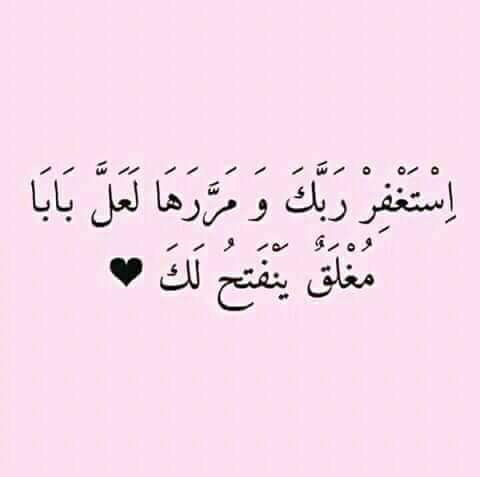 اِسْتَغْفِرْ رَبَّكَ وَ مَرَّرَهَا لَعَلَّ بَابَا
مُغْلَقٌ يَنْفَتحُ لَكَ ♥